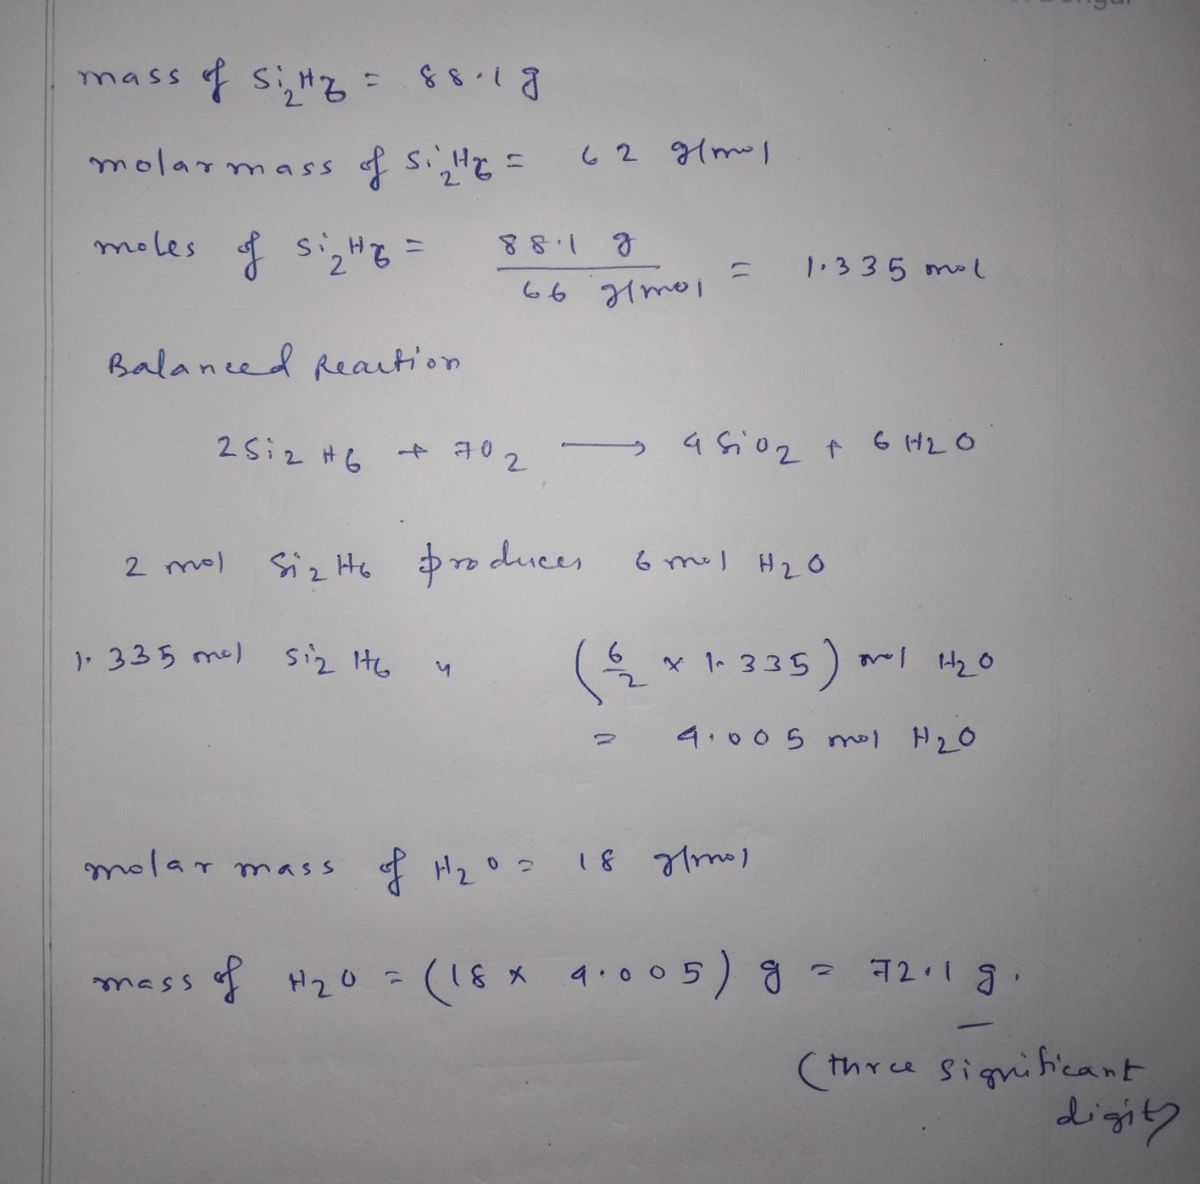 mass of Si2H6 = 88.1 g
molar mass of Si2H6 = 62 g/mol
moles of Si2H6 = 88.1 g / 66 g/mol = 1.335 mol
Balanced Reaction
2 Si2 H6 + 7O2 → 4 SiO2 + 6 H2O
2 mol Si2 H6 produces 6 mol H2O
1.335 mol Si2 H6 " (6/2 × 1.335) mol H2O
= 4.005 mol H2O
molar mass of H2O = 18 g/mol
mass of H2O = (18 × 4.005) g = 72.1 g.
(three significant
digits)